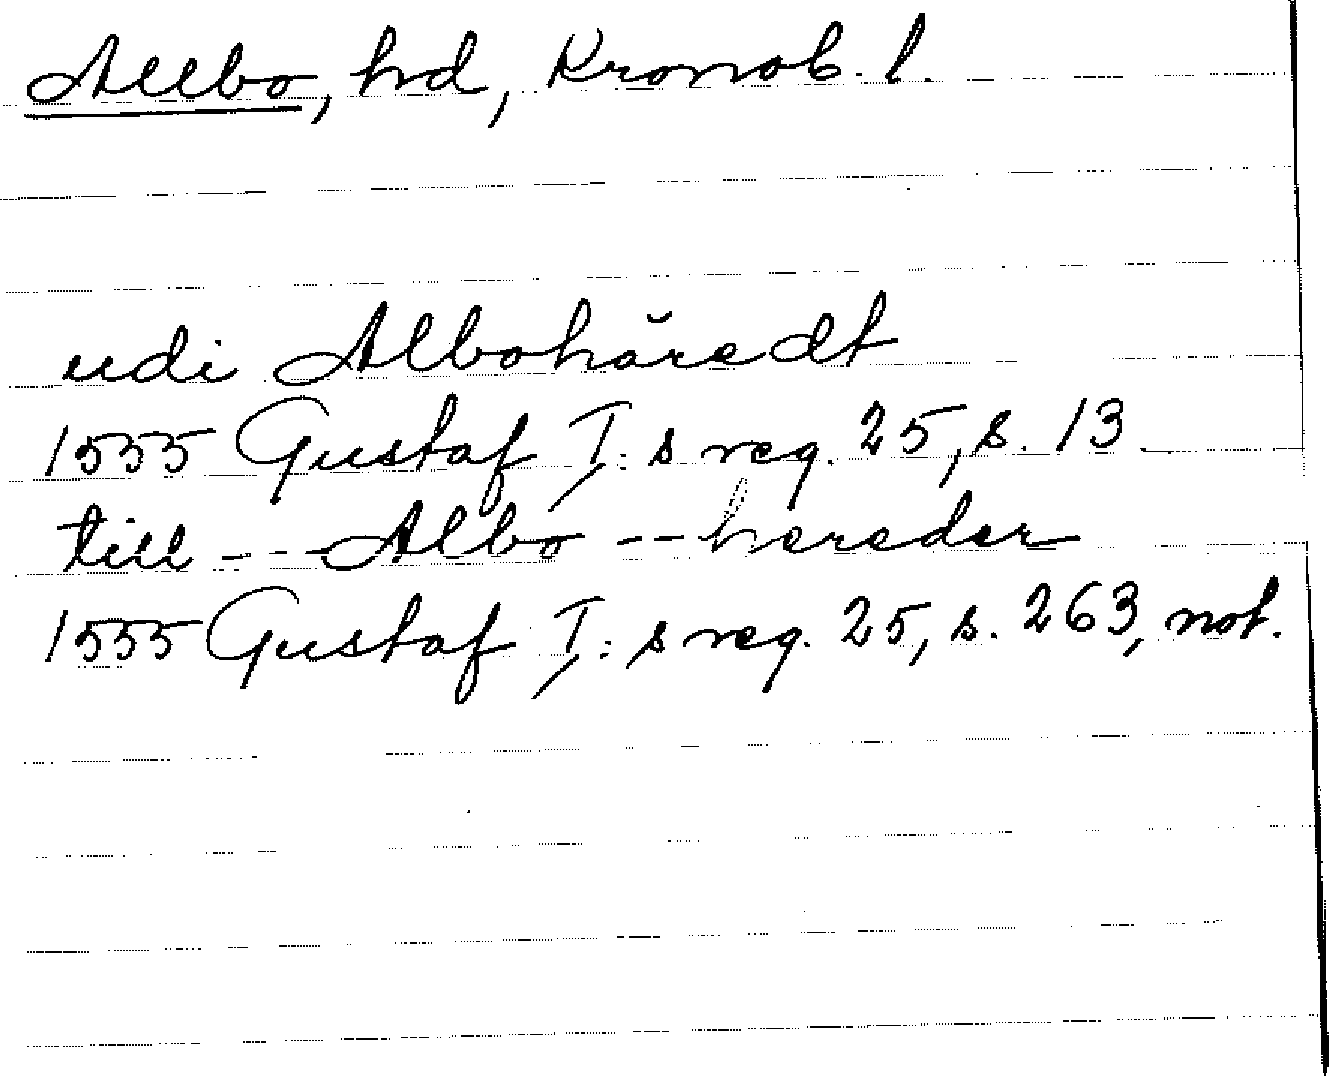 Allbo, hd, Kronob. l.
udi Albohäredt
1555 Gustaf I:s reg. 25, s. 13
till --- Albo -- hereder
1555 Gustaf I:s reg. 25, s. 263, not.